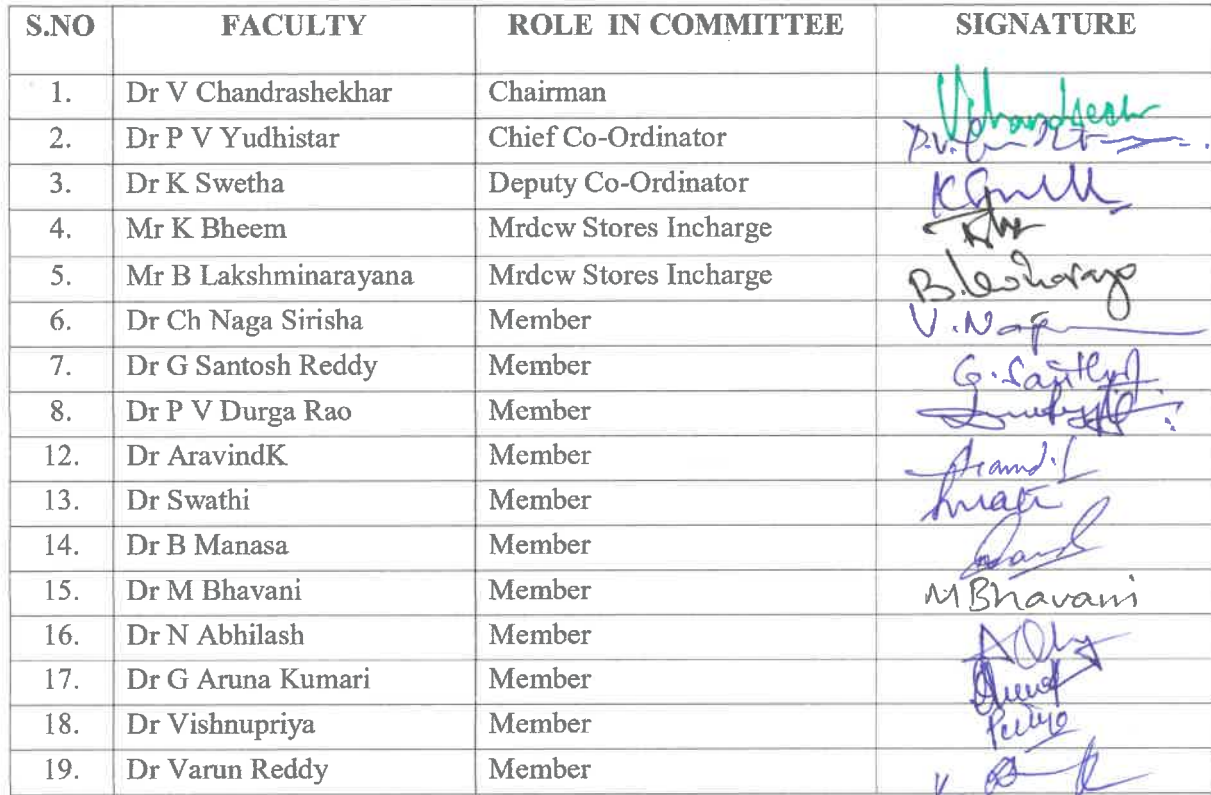 S.NO FACULTY ROLE IN COMMITTEE SIGNATURE
1. Dr V Chandrashekhar Chairman
2. Dr P V Yudhistar Chief Co-Ordinator P.V.
3. Dr K Swetha Deputy Co-Ordinator
4. Mr K Bheem Mrdcw Stores Incharge
5. Mr B Lakshminarayana Mrdcw Stores Incharge
6. Dr Ch Naga Sirisha Member
7. Dr G Santosh Reddy Member
8. Dr P V Durga Rao Member
12. Dr AravindK Member
13. Dr Swathi Member
14. Dr B Manasa Member
15. Dr M Bhavani Member M Bhavani
16. Dr N Abhilash Member
17. Dr G Aruna Kumari Member
18. Dr Vishnupriya Member
19. Dr Varun Reddy Member